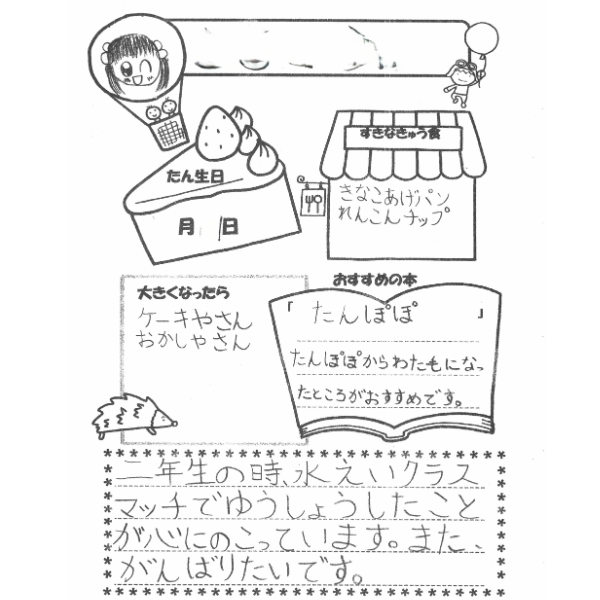 たん生日
月 日
すきなきゅう食
きなこあげパン
れんこんチップ
大きくなったら
ケーキやさん
おかしやさん
おすすめの本
「たんぽぽ」
たんぽぽからわたもになっ
たところがおすすめです。
二年生の時、水えいクラス
マッチでゆうしょうしたこと
が心にのこっています。また、
がんばりたいです。